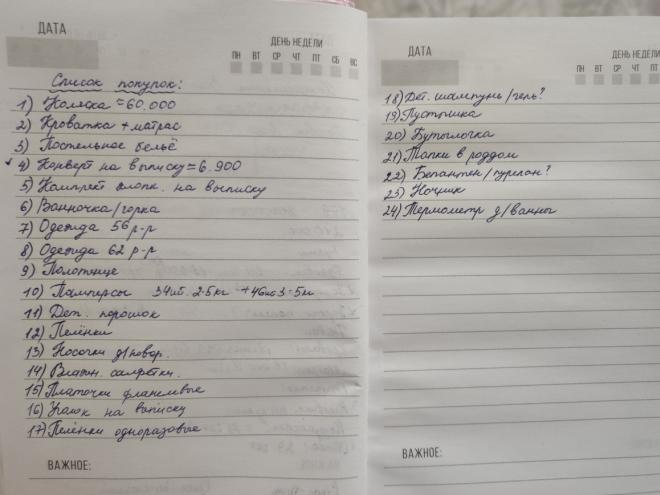 ДАТА
ДЕНЬ НЕДЕЛИ
ПН ВТ СР ЧТ ПТ СБ ВС
Список покупок:
1) Коляска = 60.000
2) Кроватка + матрас
3) Постельное бельё
4) Конверт на выписку = 6.900
5) Комплект хлопк. на выписку
6) Ванночка/горка
7) Одежда 56 р-р
8) Одежда 62 р-р
9) Полотнце
10) Памперсы 34шт. 2-5кг +46шт 3-5кг
11) Дет. порошок
12) Пелёнки
13) Носочки д/новор.
14) Влажн. салфетки.
15) Платочки фланелевые
16) на выписку
17) Пелёнки одноразовые
ВАЖНОЕ:
ДАТА
ДЕНЬ НЕДЕЛИ
ПН ВТ СР ЧТ ПТ
18) Дет. шампунь/гель?
19) Пустышка
20) Бутылочка
21) Тапки в роддом
22) Бепантен/пурелан?
23) Ночник
24) Термометр д/ванны
ВАЖНОЕ: